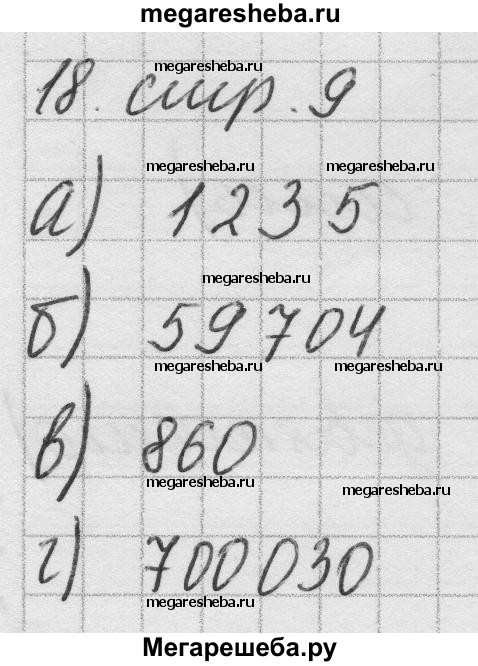 megaresheba.ru
megaresheba.ru
18. стр. 9
megaresheba.ru
megaresheba.ru megaresheba.ru
а) 1 2 3 5
megaresheba.ru
б) 59704
megaresheba.ru megaresheba.ru
в) 860
megaresheba.ru
megaresheba.ru
г) 700030
megaresheba.ru
Мегарешеба.ру